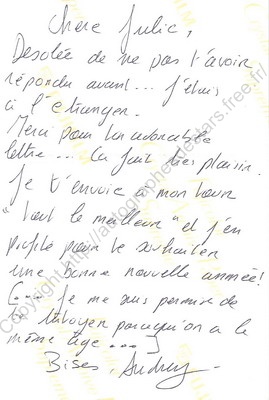 Chère Julie,
Desolée de ne pas t'avoir
répondu avant... J'étais
à l'étranger.
Merci pour ton adorable
lettre... Ca fait très plaisir.
Je t'envoie à mon tour
"tout le meilleur" et j'en
profite pour te souhaiter
une bonne nouvelle année!
(... Je me suis permise de
te tutoyer parcequ'on a le
même âge...)
Bises, Audrey
http://autographesdestars.free.fr/